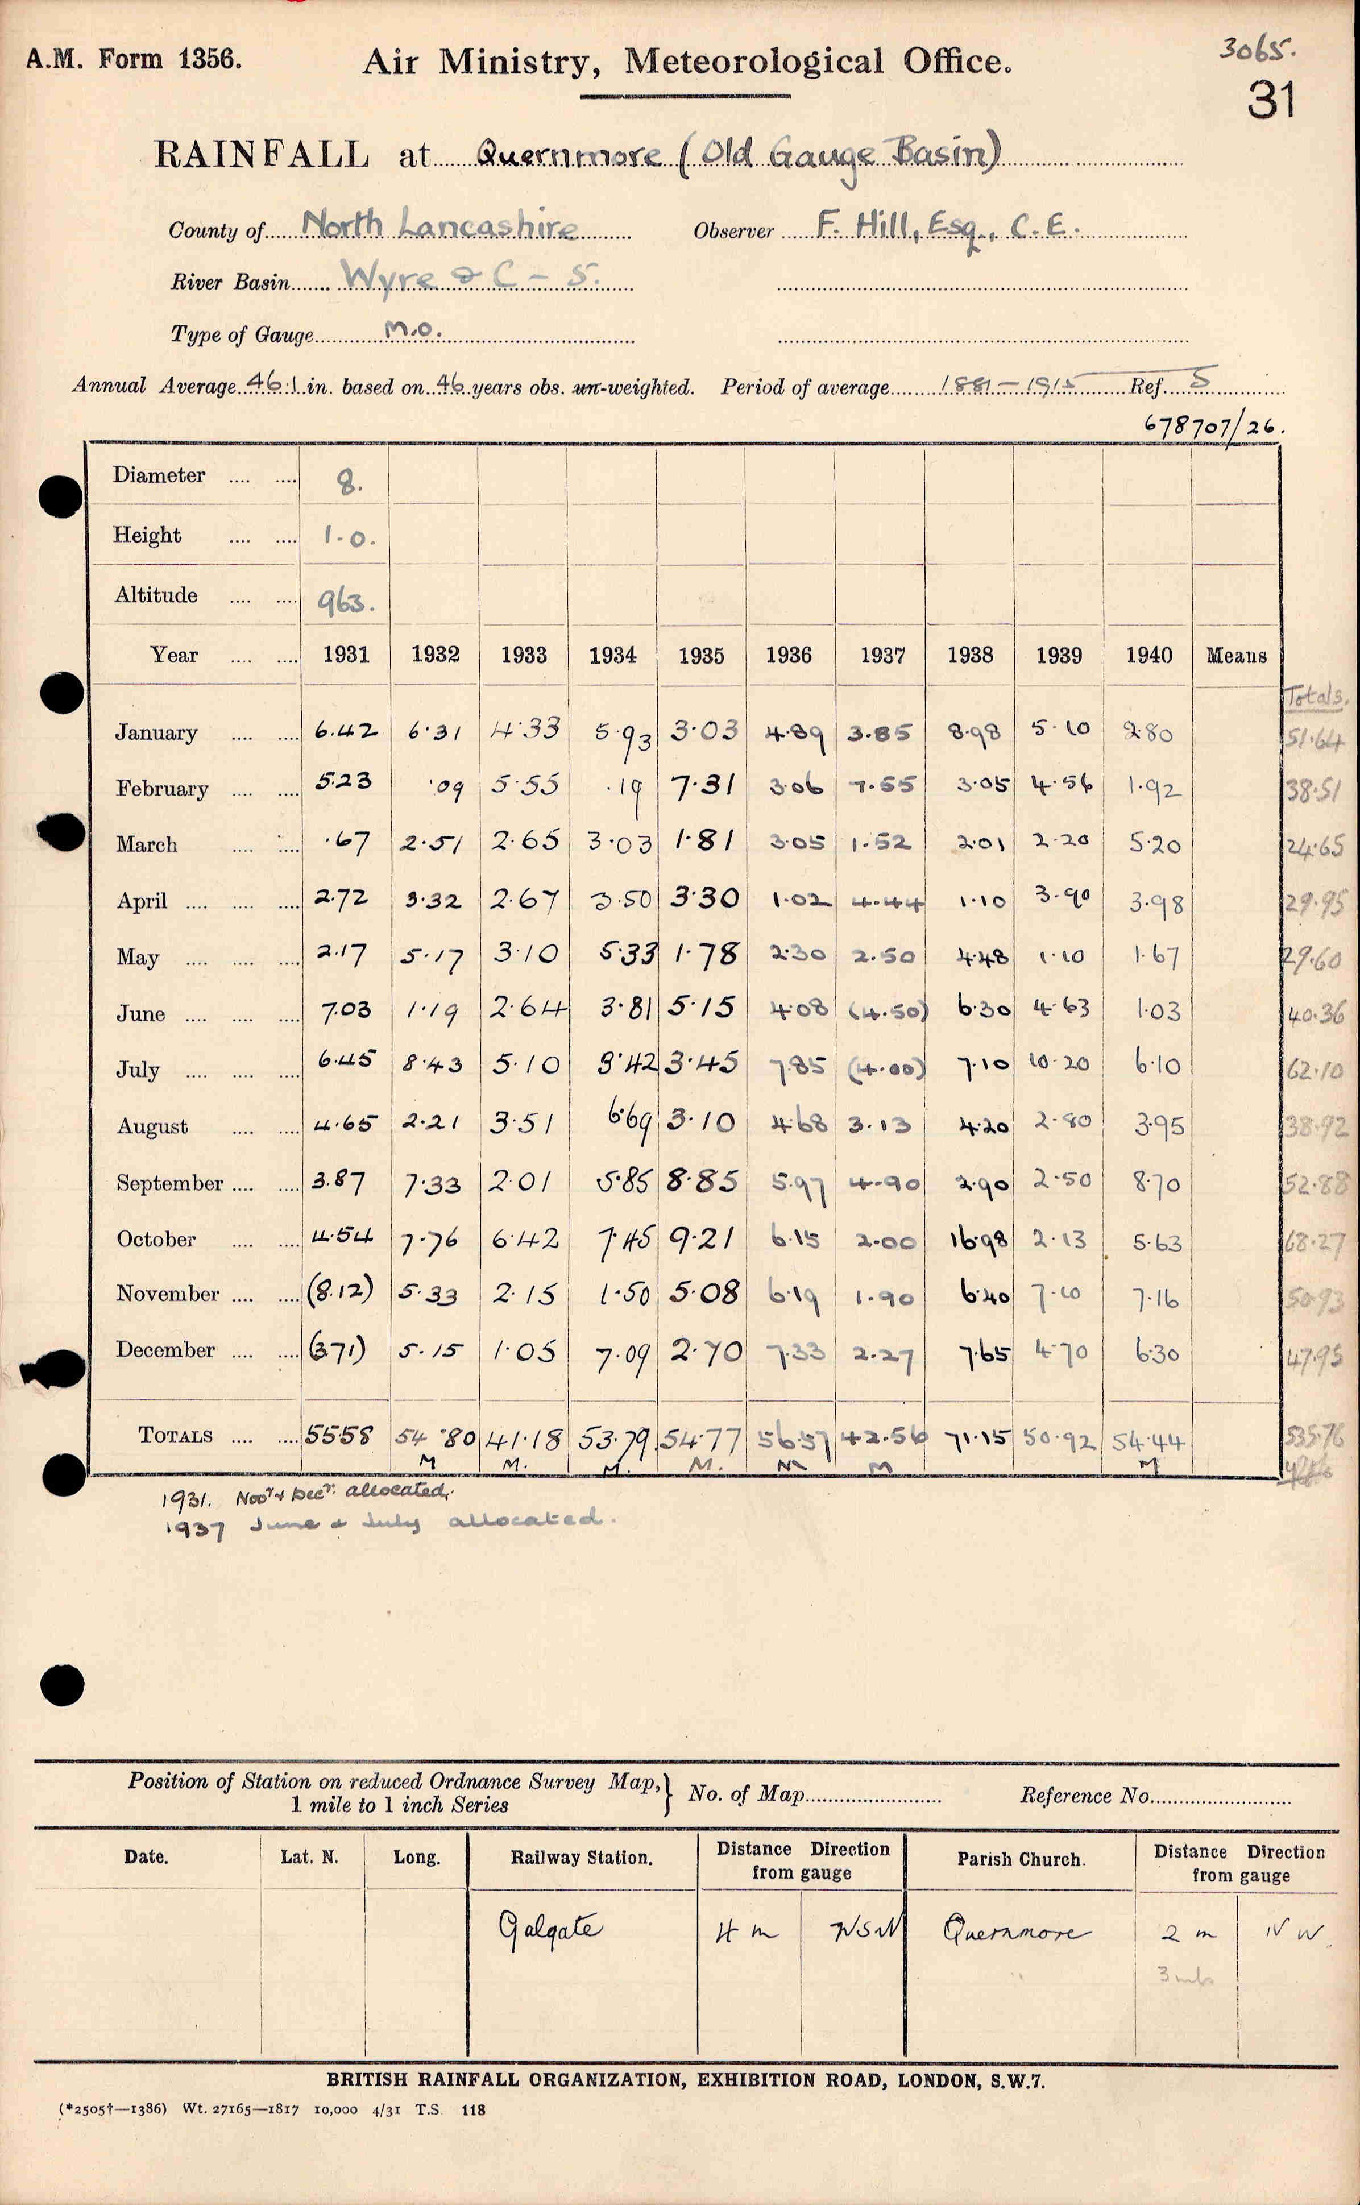 A.M. Form 1356.
Air Ministry, Meteorological Office.
3065.
31
RAINFALL at Quernmore (Old Gauge Basin)
County of North Lancashire Observer F. Hill, Esq., C.E.
River Basin Wyre & C - 5.
Type of Gauge M.O.
Annual Average 46.1 in. based on 46 years obs. un-weighted. Period of average 1881-1915 Ref. 5
678707/26.
Diameter 8.
Height 1.0.
Altitude 963.
Year 1931 1932 1933 1934 1935 1936 1937 1938 1939 1940 Means
Totals.
January 6.42 6.31 4.33 5.93 3.03 4.89 3.85 8.98 5.10 2.80 51.64
February 5.23 .09 5.55 .19 7.31 3.06 7.55 3.05 4.56 1.92 38.51
March .67 2.51 2.65 3.03 1.81 3.05 1.52 2.01 2.20 5.20 24.65
April 2.72 3.32 2.67 3.50 3.30 1.02 4.44 1.10 3.90 3.98 29.95
May 2.17 5.17 3.10 5.33 1.78 2.30 2.50 4.48 1.10 1.67 29.60
June 7.03 1.19 2.64 3.81 5.15 4.08 (4.50) 6.30 4.63 1.03 40.36
July 6.45 8.43 5.10 3.42 3.45 7.85 (4.00) 7.10 10.20 6.10 62.10
August 4.65 2.21 3.51 6.69 3.10 4.68 3.13 4.20 2.80 3.95 38.92
September 3.87 7.33 2.01 5.85 8.85 5.97 4.90 2.90 2.50 8.70 52.88
October 4.54 7.76 6.42 7.45 9.21 6.15 2.00 16.98 2.13 5.63 68.27
November (8.12) 5.33 2.15 1.50 5.08 6.19 1.90 6.40 7.10 7.16 50.93
December (3.71) 5.15 1.05 7.09 2.70 7.33 2.27 7.65 4.70 6.30 47.95
TOTALS 55.58 54.80 41.18 53.79 54.77 56.57 42.56 71.15 50.92 54.44 535.76
M M. M. M. M M M
1931. Novr & Decr. allocated.
1937 June & July allocated.
Position of Station on reduced Ordnance Survey Map,} No. of Map Reference No.
1 mile to 1 inch Series
Date. Lat. N. Long. Railway Station. Distance from gauge Direction Parish Church. Distance from gauge Direction
Galgate 4 m WSW Quernmore 2 m NW.
3 mls
BRITISH RAINFALL ORGANIZATION, EXHIBITION ROAD, LONDON, S.W.7.
(*2505†—1386) Wt. 27165—1817 10,000 4/31 T.S. 118